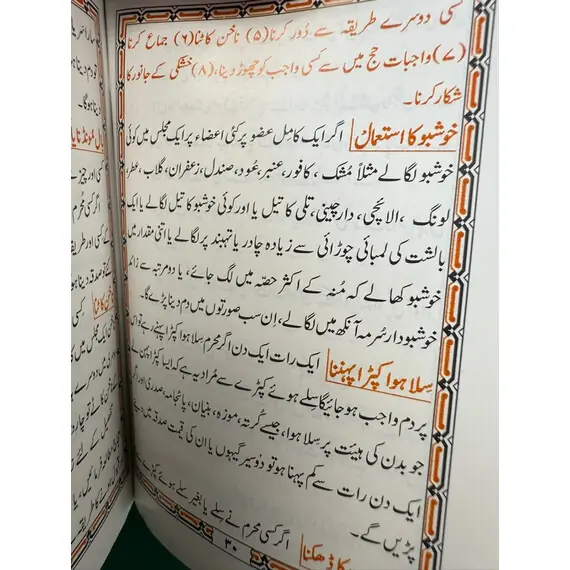 کسی دوسرے طریقہ سے دُور کرنا (۵) ناخن کاٹنا (۶) جماع کرنا
(۷) واجبات حج میں سے کسی واجب کو چھوڑ دینا، (۸) خشکی کے جانور کا
شکار کرنا۔
خوشبو کا استعمال اگر ایک کامل عضو پر کئی اعضاء پر ایک مجلس میں کوئی
خوشبو لگالے مثلاً مُشک، کافور، عنبر، عُود، صندل، زعفران، گلاب، عطر،
لونگ، الائچی، دارچینی، تلی کا تیل یا اور کوئی خوشبو کا تیل لگالے یا ایک
بالشت کی لمبائی چوڑائی سے زیادہ چادر یا تہبند پر لگالے یا اتنی مقدار میں
خوشبو کھالے کہ مُنہ کے اکثر حصّہ میں لگ جائے، یا دو مرتبہ سے زائد
خوشبودار سُرمہ آنکھ میں لگالے، اِن سب صورتوں میں دم دینا پڑے گا۔
سِلا ہوا کپڑا پہننا ایک رات ایک دن اگر محرم سلا ہوا کپڑا پہنے رہے تو اس
پر دم واجب ہوجائیگا سلے ہوئے کپڑے سے مُراد یہ ہے کہ ایسا کپڑا پہن لے
جو بدن کی ہیئت پر سلا ہوا، جیسے کُرتہ، موزہ، بنیان، پائجامہ، صدری اور اگر
ایک دن رات سے کم پہنا ہو تو دو سیر گیہوں یا ان کی قیمت صدقہ میں دینے
پڑیں گے۔
کا ڈھکنا اگر کسی محرم نے سلے یا بغیر سلے ہوئے کپڑے
۳۰